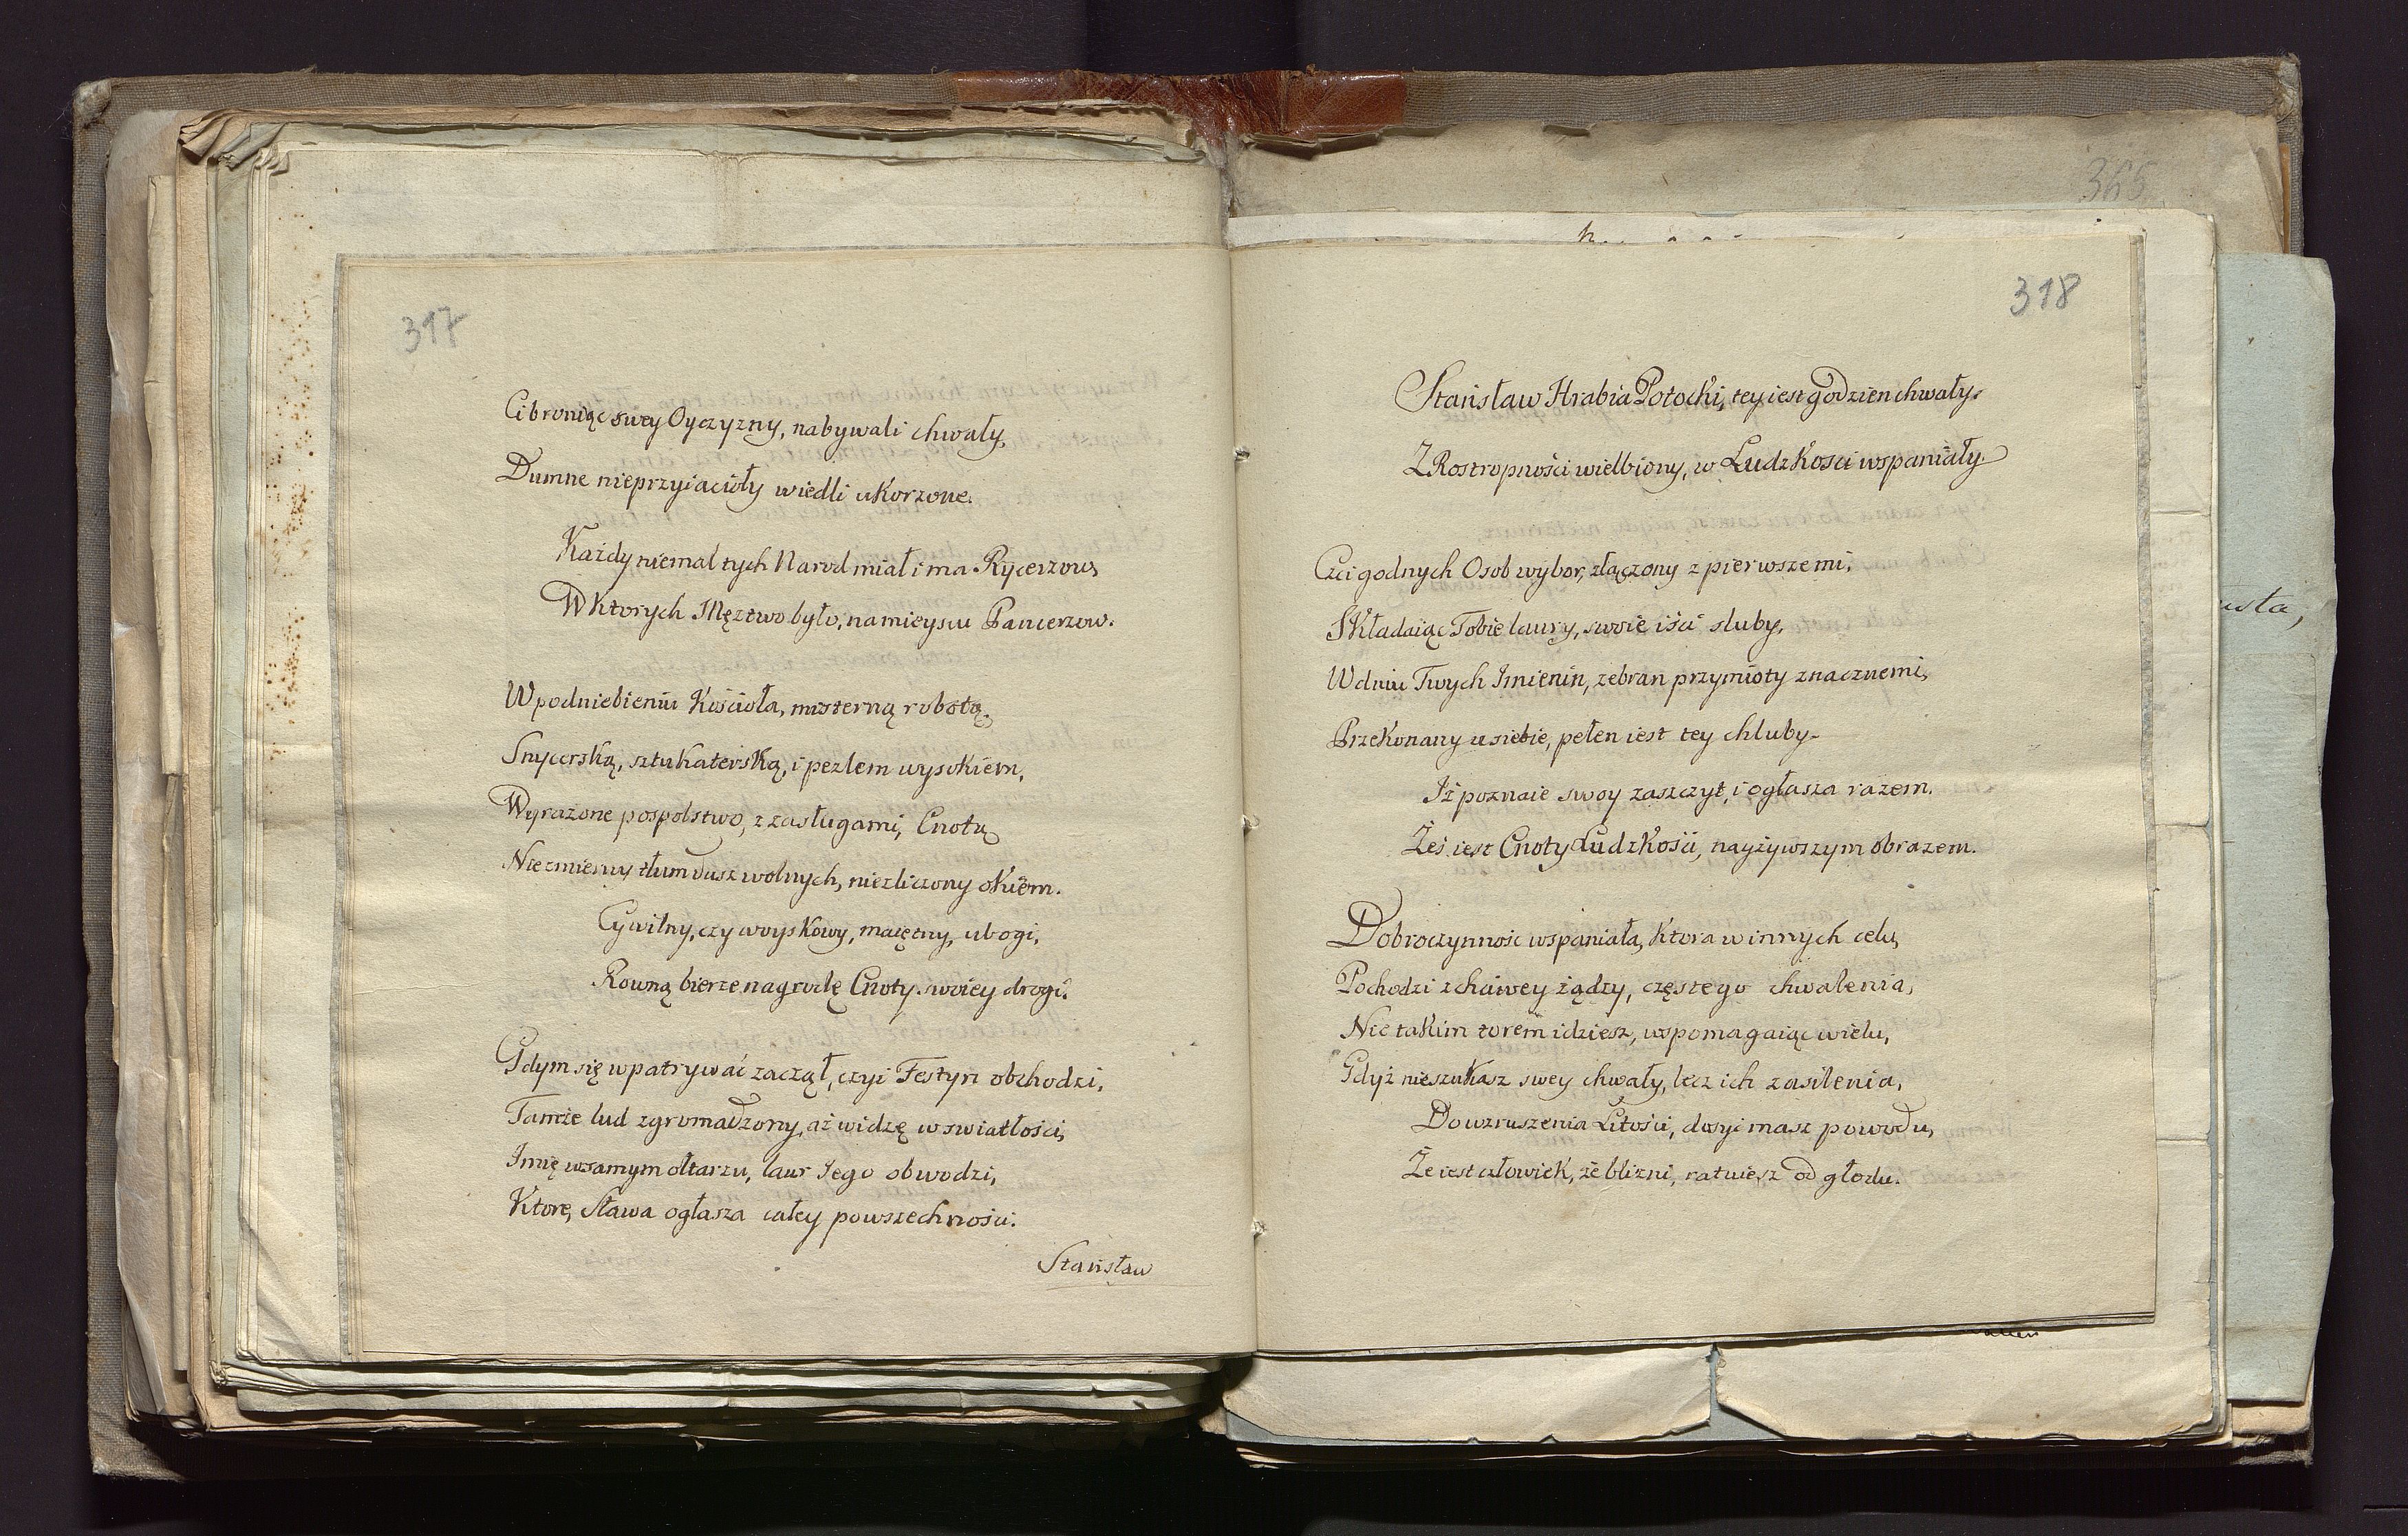 317
Ci broniąc swey Oyczyzny, nabywali chwały,
Dumne nieprzyiacioły wiedli ukorzone.
Każdy niemal tych Narod miał i ma Rycerzow,
W ktorych Męztwo było, na mieyscu Pancerzow.
W podniebieniu Kościoła, misterną robotą,
Snycerską, sztukaterską, i pezlem wysokiem,
Wyrażone pospolstwo, z zasługami, Cnotą
Niezmierny tłum dusz wolnych, niezliczony okiem.
Cywilny, czy woyskowy, maiętny, ubogi,
Rowną bierze nagrodę Cnoty swoiey drogi.
Gdym się wpatrywać zaczął, czyi Festyn obchodzi,
Tamże lud zgromadzony, aż widzę w swiatłości,
Imię w samym ołtarzu, laur Iego obwodzi,
Ktore, Sława ogłasza całey powszechności.
Stanisław
365
318
Stanisław Hrabia Potocki, tey iest godzien chwały.
Z Rostropności wielbiony, w Ludzkosci wspaniały.
Czci godnych Osob wybor, złączony z pierwszemi,
Składaiąc Tobie laury, swoie iści sluby,
W dniu Twych Imienin, zebran przymioty znacznemi,
Przekonany u siebie, pełen iest tey chluby.
Iż poznaie swoy zaszczyt, i ogłasza razem.
Żeś iest Cnoty Ludzkości, nayżywszym obrazem.
Dobroczynność wspaniała, ktora w innych celu,
Pochodzi z chciwey żądzy, częstego chwalenia,
Nie takim torem idziesz, wspomagaiąc wielu,
Gdyż nieszukasz swey chwały, lecz ich zasilenia,
Do wzruszenia Litości, dosyć masz powodu,
Że iest człowiek, że blizni, ratuiesz od głodu.